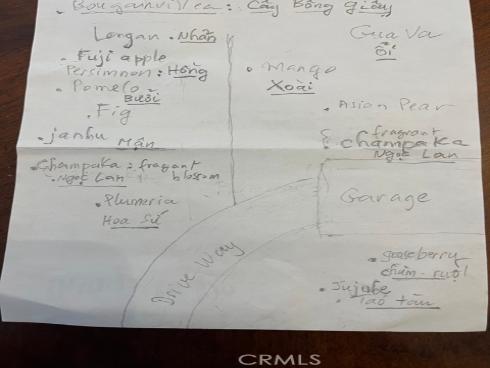 Bougainvillea: Cây Bông giấy
Longan . Nhãn
Guava
ổi
. Fuji apple
Persimmon: Hồng
. Pomelo
Bưởi
Fig
. Mango
Xoài
. Asian Pear
. janhu Mận
fragrant
champaka
Ngọc Lan
. Champaka: fragant
. Ngọc Lan blossom
. Plumeria
Hoa Sứ
Garage
Drive Way
. gooseberry
chùm-ruột
. Jujube
. Táo tàu
CRMLS